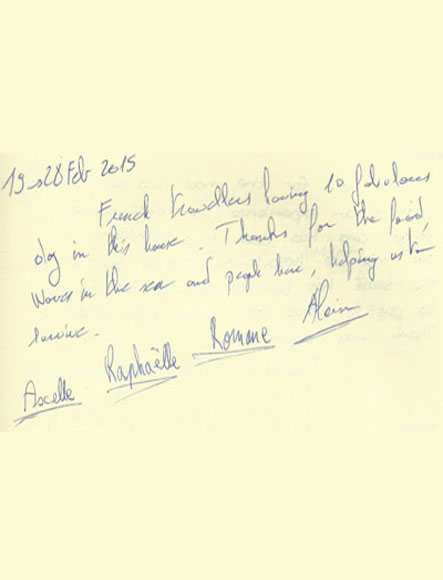 19 → 28 Feb 2015
French travellers having 10 fabulous
day in this house. Thanks for the food,
waves in the sea and people here, helping us to
Axelle Raphaëlle Romane Alain